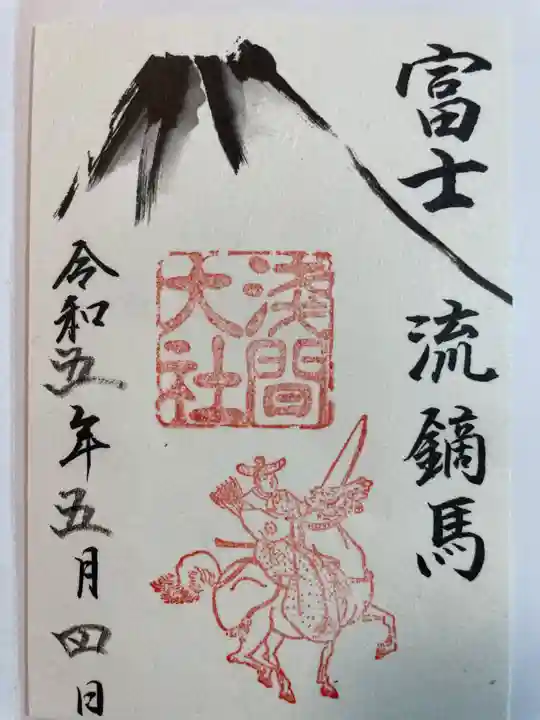 富士 流鏑馬
浅間
大社
令和五年五月四日